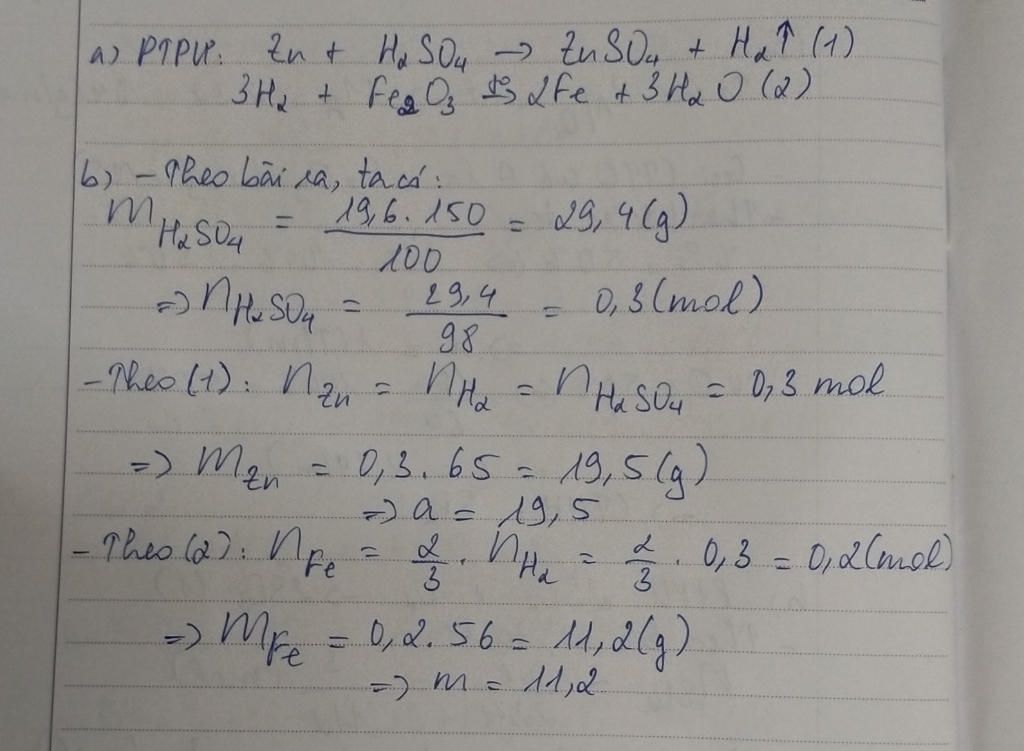 a) PTPƯ: Zn + H₂SO₄ → ZnSO₄ + H₂↑ (1)
3H₂ + Fe₂O₃ t°→ 2Fe + 3H₂O (2)
b) - Theo bài ra, ta có:
m_H₂SO₄ = 19,6 . 150 / 100 = 29,4 (g)
=> n_H₂SO₄ = 29,4 / 98 = 0,3 (mol)
- Theo (1): n_Zn = n_H₂ = n_H₂SO₄ = 0,3 mol
=> m_Zn = 0,3 . 65 = 19,5 (g)
=> a = 19,5
- Theo (2): n_Fe = 2/3 . n_H₂ = 2/3 . 0,3 = 0,2 (mol)
=> m_Fe = 0,2 . 56 = 11,2 (g)
=> m = 11,2